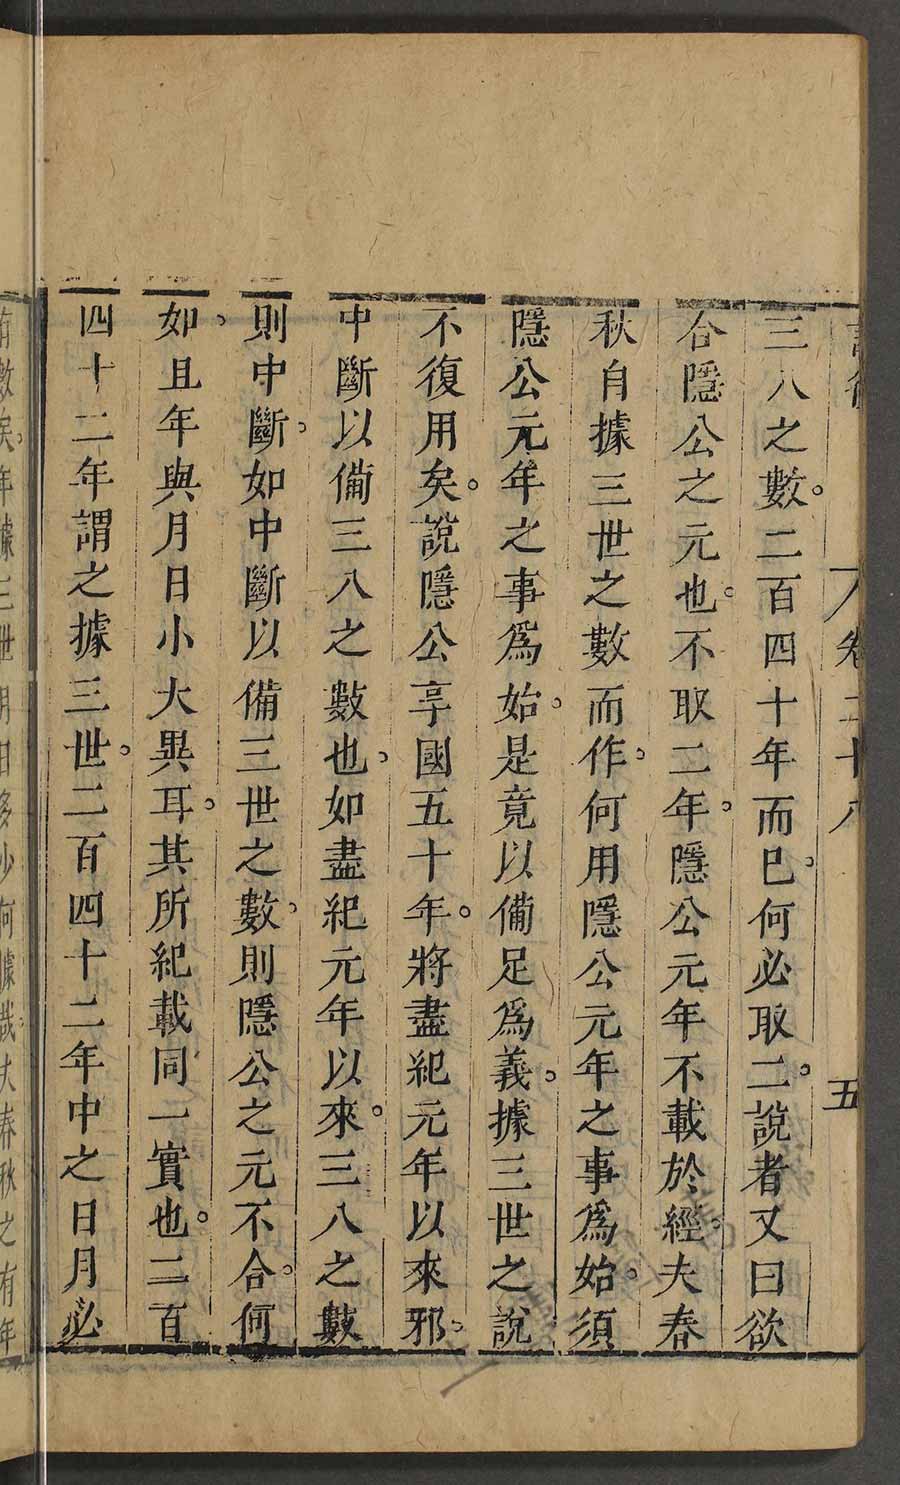 卷二十八 五
三八之數。二百四十年而已。何必取二。說者又曰欲
合隱公之元也。不取二年。隱公元年不載於經。夫春
秋自據三世之數而作。何用隱公元年之事爲始。須
隱公元年之事爲始。是竟以備足爲義。據三世之說
不復用矣。說隱公享國五十年。將盡紀元年以來邪。
中斷以備三八之數也。如盡紀元年以來。三八之數
則中斷。如中斷以備三世之數。則隱公之元不合。何
如。且年與月日小大異耳。其所紀載同一實也。二百
四十二年謂之據三世。二百四十二年中之日月必
有數矣。年據三世月日多少何據哉。夫春秋之有年